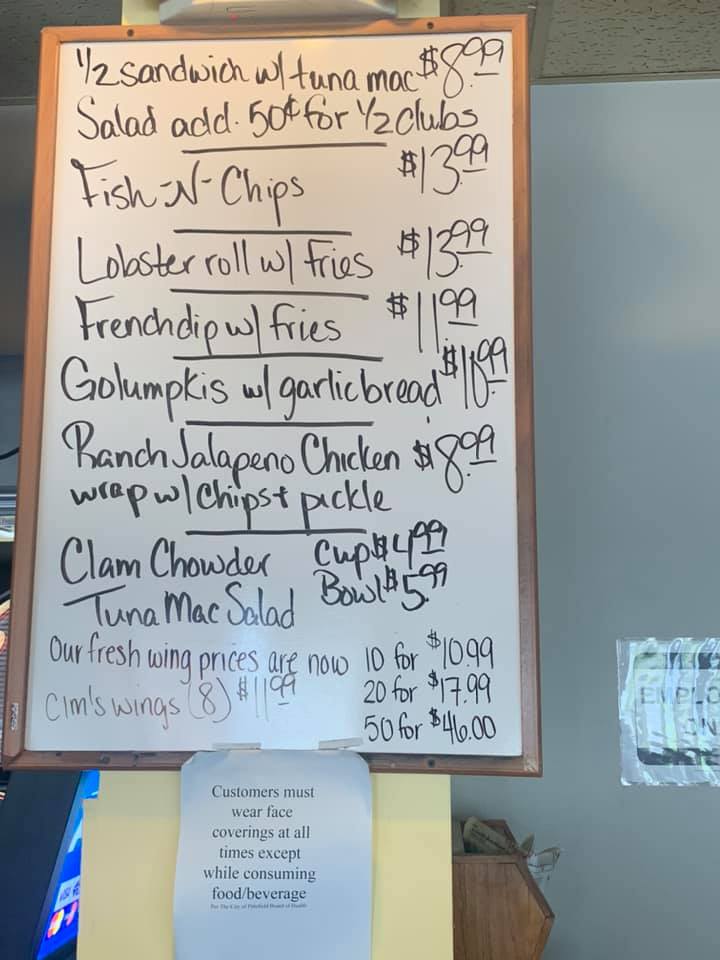 1/2 Sandwich w/ tuna mac $8.99
Salad add. 50¢ for 1/2 clubs
Fish-N-Chips $13.99
Lobster roll w/ fries $13.99
French dip w/ fries $11.99
Golumpkis w/ garlic bread $10.99
Ranch Jalapeno Chicken $8.99
wrap w/ Chips + pickle
Clam Chowder Cup $4.99
Bowl $5.99
Tuna Mac Salad
Our fresh wing prices are now 10 for $10.99
Cim's wings (8) $11.99 20 for $17.99
50 for $46.00
Customers must
wear face
coverings at all
times except
while consuming
food/beverage
Per The City of Pittsfield Board of Health